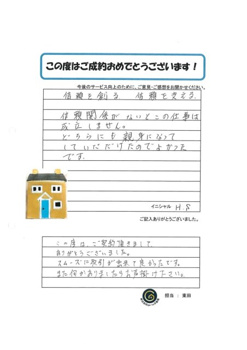 この度はご成約おめでとうございます！
今後のサービス向上のために、ご意見・ご感想をお聞かせください。
信頼を創る 信頼を支える
信頼関係がないとこの仕事は
成立しません。
どちらにも親身になって
していただけたのでよかった
です。
イニシャル H S
ご記入ありがとうございました。
この度は、ご契約頂きまして
ありがとうございました。
スムーズに取引が出来て良かったです。
また何かありましたらお声掛け下さい。
担当 ：